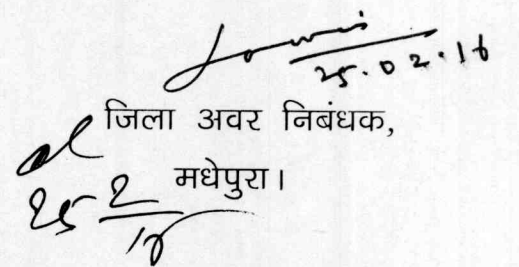 25.02.16
जिला अवर निबंधक,
मधेपुरा।
25 2/16